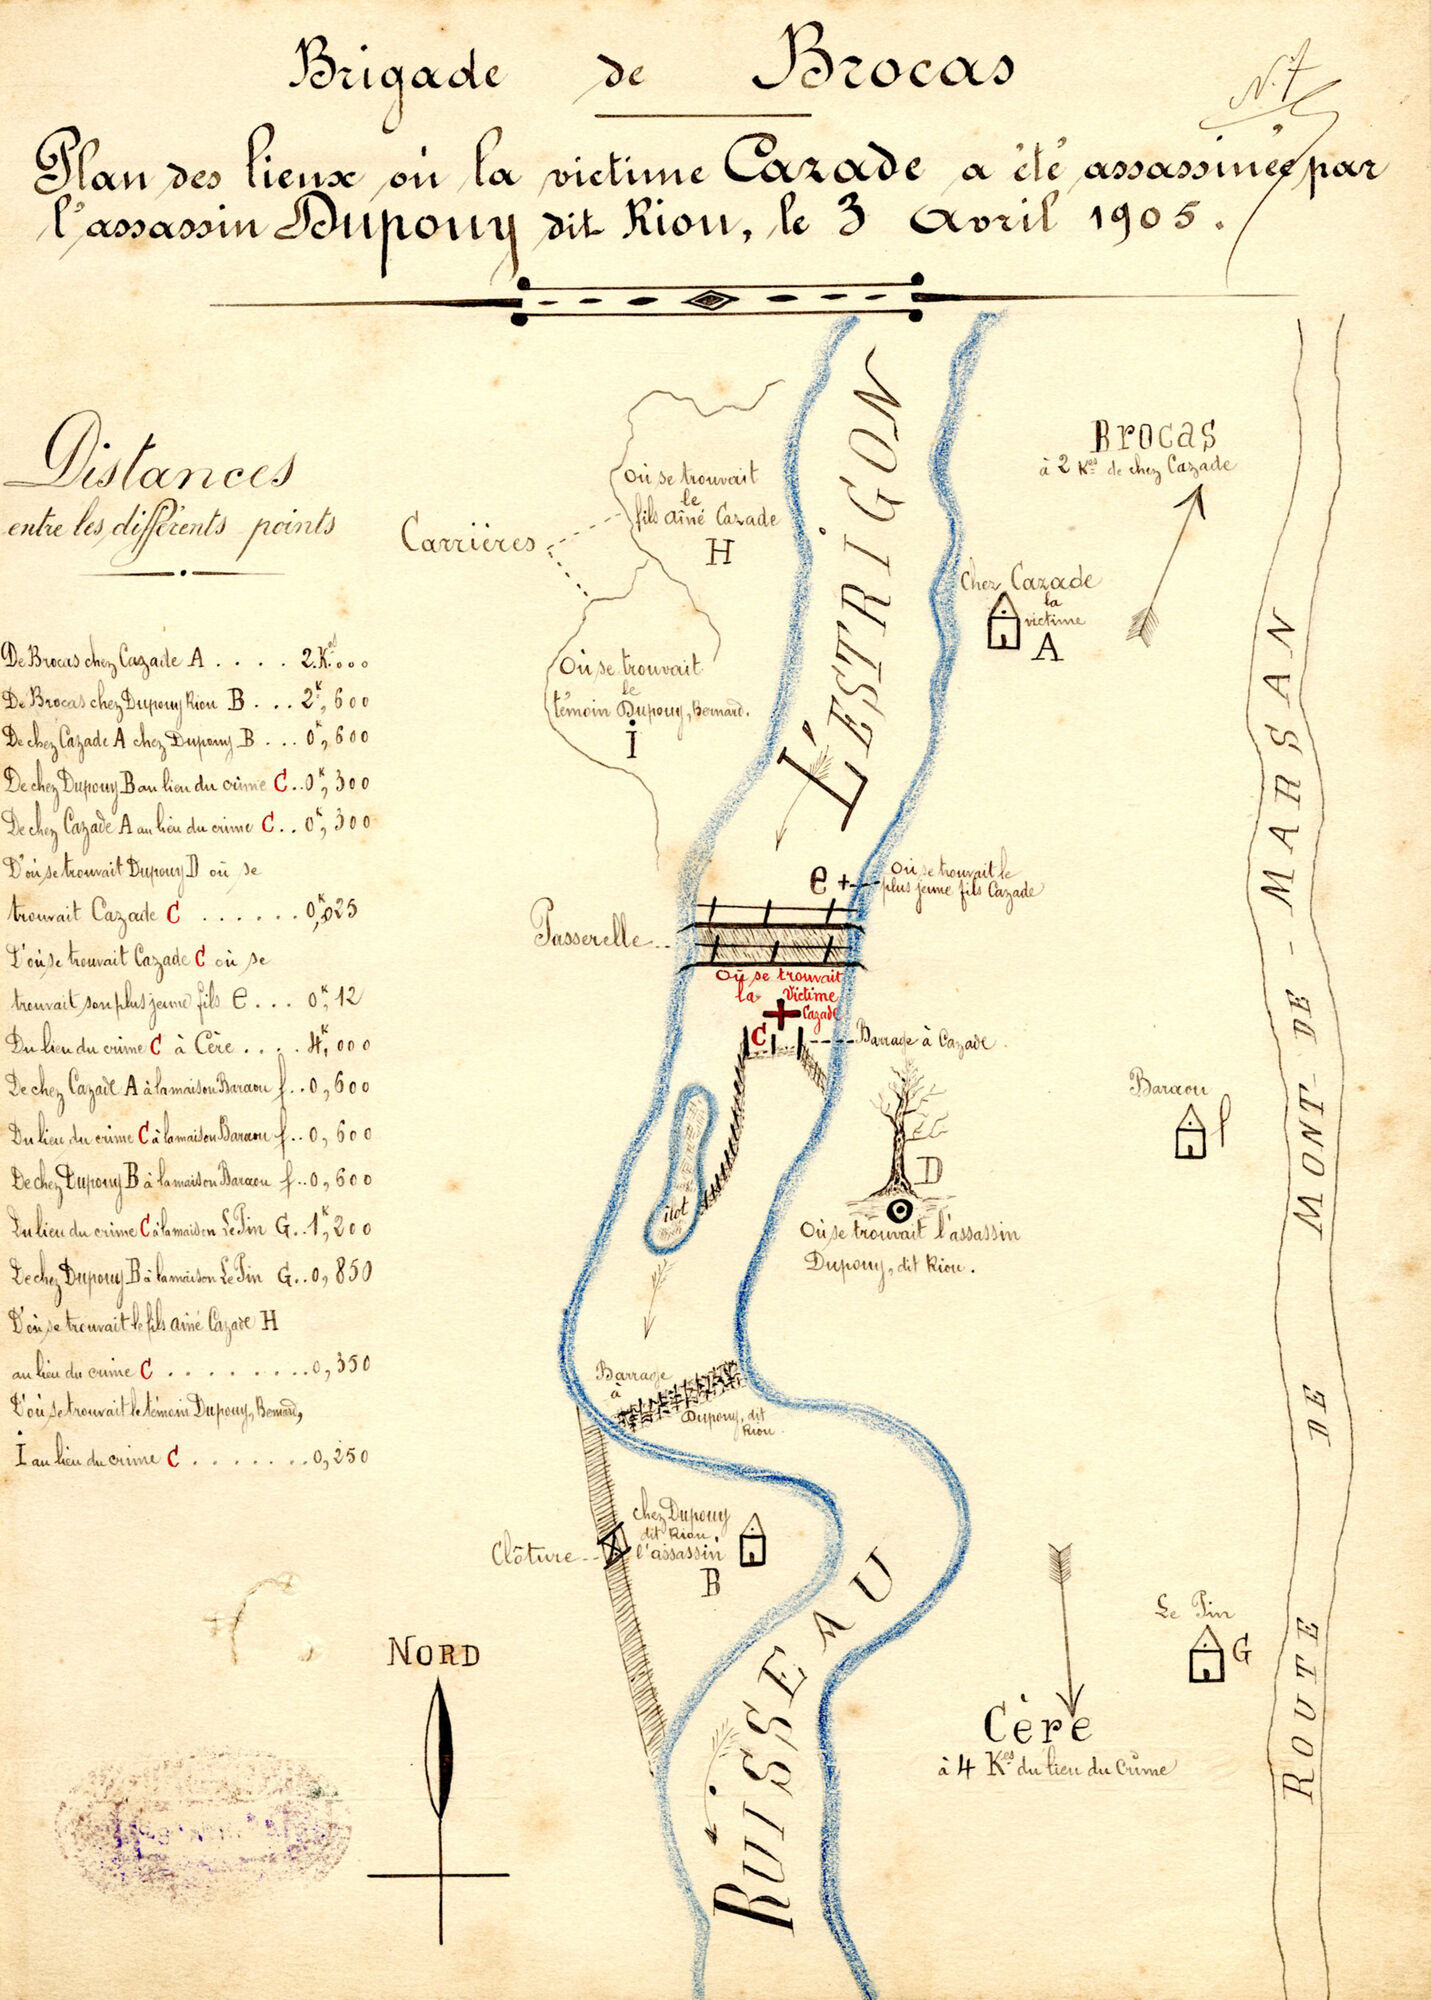 Brigade de Brocas
Plan des lieux où la victime Cazade a été assassinée par
l'assassin Dupouy dit Riou, le 3 Avril 1905.
Distances
entre les différents points
De Brocas chez Cazade A . . . . 2.K.es 000
De Brocas chez Dupouy Riou B . . . 2K, 600
De chez Cazade A chez Dupouy B . . . 0K, 600
De chez Dupouy B au lieu du crime C . . 0K, 300
De chez Cazade A au lieu du crime C . . 0K, 300
D'où se trouvait Dupouy D où se
trouvait Cazade C . . . . . . 0,025
D'où se trouvait Cazade C où se
trouvait son plus jeune fils e . . . 0K, 12
Du lieu du crime C à Cère . . . . 4K, 000
De chez Cazade A à la maison Baraou f . . 0, 600
Du lieu du crime C à la maison Baraou f . . 0, 600
De chez Dupouy B à la maison Baraou f . . 0, 600
Du lieu du crime C à la maison Le Pin G . . 1K, 200
De chez Dupouy B à la maison Le Pin G . . 0, 850
D'où se trouvait le fils aîné Cazade H
au lieu du crime C . . . . . . . . . 0, 350
D'où se trouvait le témoin Dupouy, Bernard,
I au lieu du crime C . . . . . . . 0, 250
Carrières
Où se trouvait
le
fils aîné Cazade
H
Où se trouvait
le
témoin Dupouy, Bernard.
I
L'ÉSTRIGON
Brocas
à 2 Kes de chez Cazade
Chez Cazade
la
victime
A
e
Où se trouvait le
plus jeune fils Cazade
Passerelle
Où se trouvait
la Victime
Cazade
C
Barrage à Cazade
îlot
D
Où se trouvait l'assassin
Dupouy, dit Riou.
Baraou
f
Barrage
à
Dupouy, dit
Riou
Clôture
chez Dupouy
dit Riou,
l'assassin
B
RUISSEAU
Le Pin
G
Cère
à 4 Kes du lieu du Crime
ROUTE DE MONT-DE-MARSAN
NORD